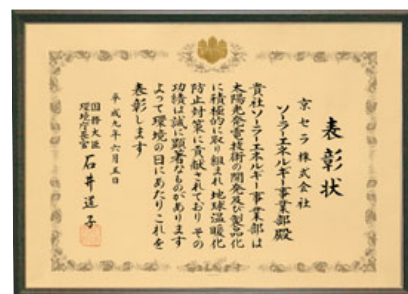 表彰状
京セラ株式会社
ソーラーエネルギー事業部殿
貴社ソーラーエネルギー事業部は
太陽光発電技術の開発及び製品化
に積極的に取り組まれ地球温暖化
防止対策に貢献されており その
功績は誠に顕著なものがあります
よって環境の日にあたりこれを
表彰します
平成九年六月五日
国務大臣
環境庁長官 石井道子